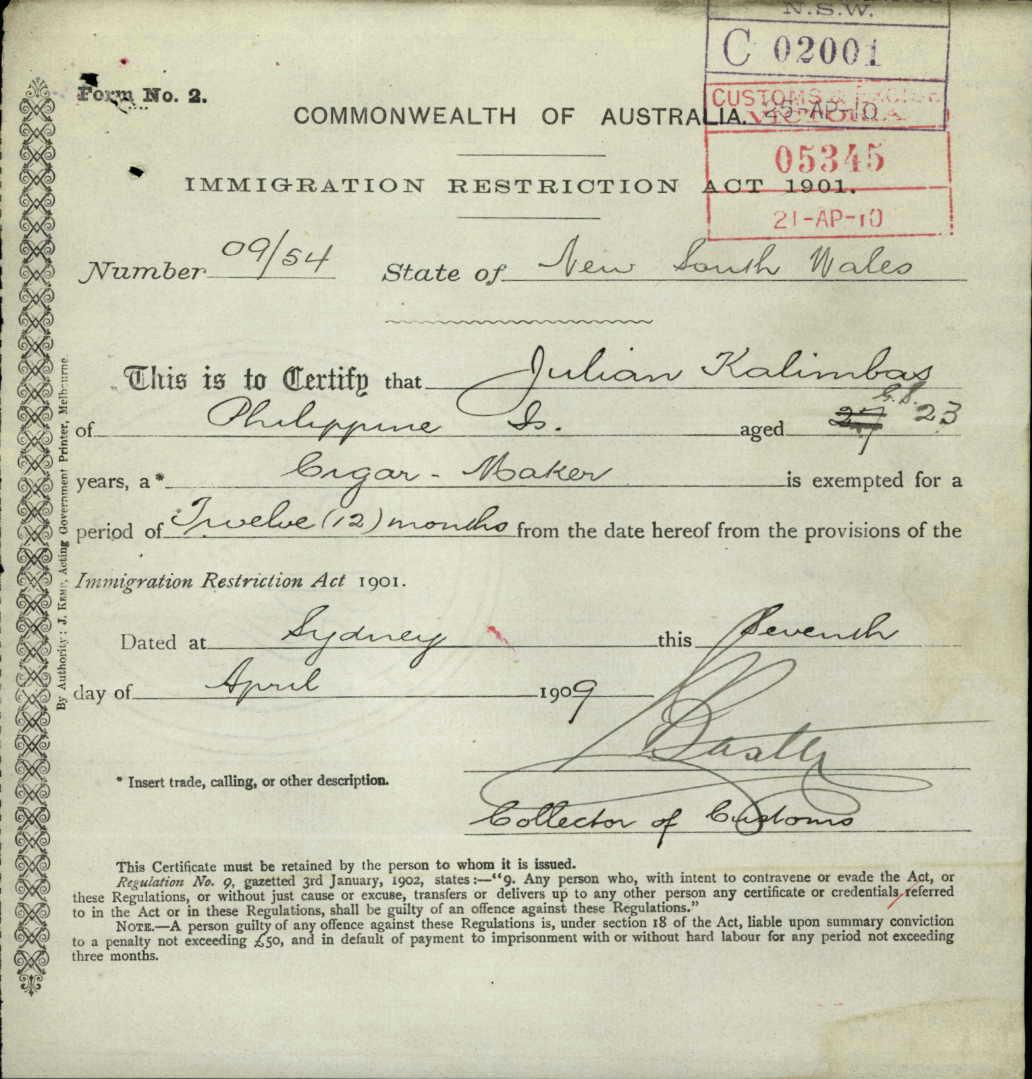 N.S.W.
C 02001
25-AP-10
CUSTOMS & EXCISE
VICTORIA
05345
21-AP-10
Form No. 2.
COMMONWEALTH OF AUSTRALIA.
IMMIGRATION RESTRICTION ACT 1901.
Number 09/54 State of New South Wales
This is to Certify that Julian Kalimbas
of Philippine Is. aged 27 G.S. 23
years, a* Cigar-Maker is exempted for a
period of Twelve (12) months from the date hereof from the provisions of the
Immigration Restriction Act 1901.
Dated at Sydney this Seventh
day of April 1909
Collector of Customs
* Insert trade, calling, or other description.
This Certificate must be retained by the person to whom it is issued.
Regulation No. 9, gazetted 3rd January, 1902, states:—"9. Any person who, with intent to contravene or evade the Act, or
these Regulations, or without just cause or excuse, transfers or delivers up to any other person any certificate or credentials referred
to in the Act or in these Regulations, shall be guilty of an offence against these Regulations."
NOTE.—A person guilty of any offence against these Regulations is, under section 18 of the Act, liable upon summary conviction
to a penalty not exceeding £50, and in default of payment to imprisonment with or without hard labour for any period not exceeding
three months.
By Authority: J. KEMP, Acting Government Printer, Melbourne.